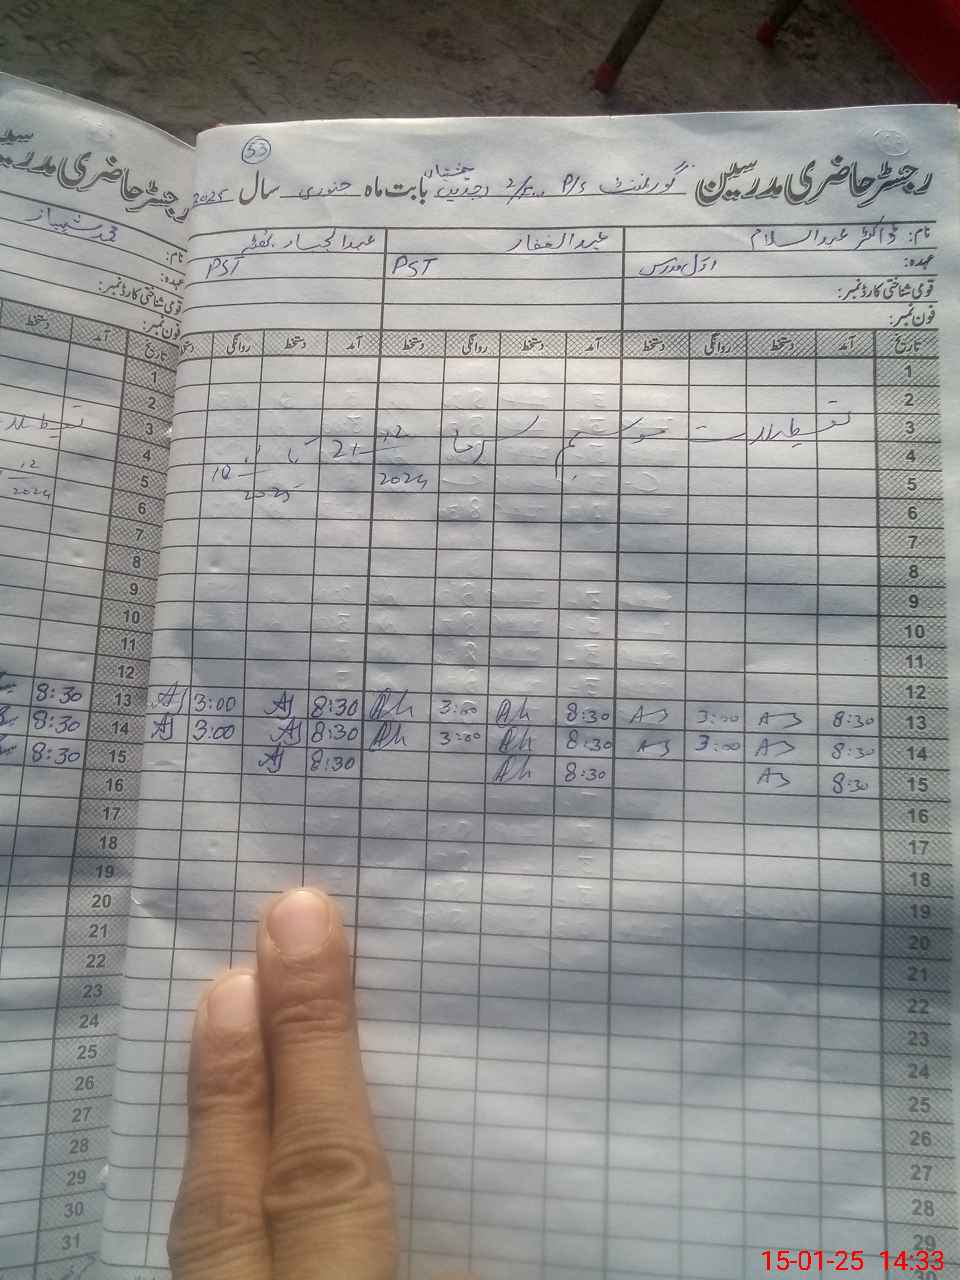 53
رجسٹر حاضری مدرسین گورنمنٹ P/S بابت ماہ جنوری سال 2025
نام: ڈاکٹر عبدالسلام عبدالغفار عبدالجبار
عہدہ: اول مدرس PST PST
قومی شناختی کارڈ نمبر:
فون نمبر:
تاریخ آمد دستخط روانگی دستخط آمد دستخط روانگی دستخط آمد دستخط روانگی دستخط
1
2
3 تعطیلات موسم سرما 21 12 2024 تا 10 2025
4
5
6
7
8
9
10
11
12
13 8:30 AS 3:00 AS 8:30 Ah 3:00 Ah 8:30 AJ 3:00 AJ
14 8:30 AS 3:00 AS 8:30 Ah 3:00 Ah 8:30 AJ 3:00 AJ
15 8:30 AS 8:30 Ah 8:30 AJ
16
17
18
19
20
21
22
23
24
25
26
27
28
29
رجسٹر حاضری مدرسین
نام: محمد شہباز
عہدہ:
قومی شناختی کارڈ نمبر:
فون نمبر:
تاریخ آمد دستخط
1
2
3
4 12
5 2024
6
7
8
9
10
11
12
13 8:30
14 8:30
15 8:30
16
17
18
19
20
21
22
23
24
25
26
27
28
29
30
31
15-01-25 14:33